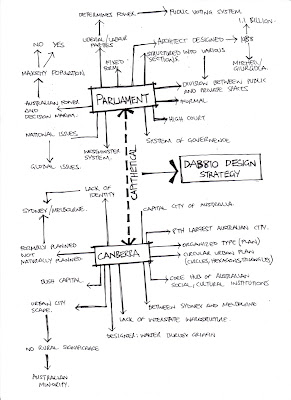 DETERMINES POWER
PUBLIC VOTING SYSTEM.
1.1 BILLION.
NO
YES
LIBERAL/LABOR
PARTIES
ARCHITECT DESIGNED
1988
FIXED
FORM
STRUCTURED INTO VARIOUS
SECTIONS.
MAJORITY
MITCHELL/
GIURGOLA.
DIVISION BETWEEN PUBLIC
AND PRIVATE SPACES
PARLIAMENT
FORMAL
AUSTRALIAN POWER
AND
DECISION MAKING.
HIGH COURT
NATIONAL ISSUES.
WESTMINSTER
SYSTEM.
SYSTEM OF GOVERNENCE
GLOBAL ISSUES.
CAPITHETICAL
DAB810 DESIGN
STRATEGY
LACK OF
IDENTITY
CAPITAL CITY OF AUSTRALIA.
SYDNEY/MELBOURNE.
8TH LARGEST AUSTRALIAN CITY.
FORMALLY PLANNED
NOT
NATURALLY PLANNED
CANBERRA
ORGANIZED TYPE (PLAN)
CIRCULAR URBAN PLAN
(CIRCLES, HEXAGONS, TRIANGLES)
BUSH CAPITAL
CORE HUB OF AUSTRALIAN
SOCIAL, CULTURAL INSTITUTIONS
URBAN CITY
SCAPE.
BETWEEN SYDNEY AND MELBOURNE
LACK OF INTERSTATE INFRASTRUCTURE
DESIGNER: WALTER BURLEY GRIFFIN
NO RURAL SIGNIFICANCE
AUSTRALIAN
MINORITY.